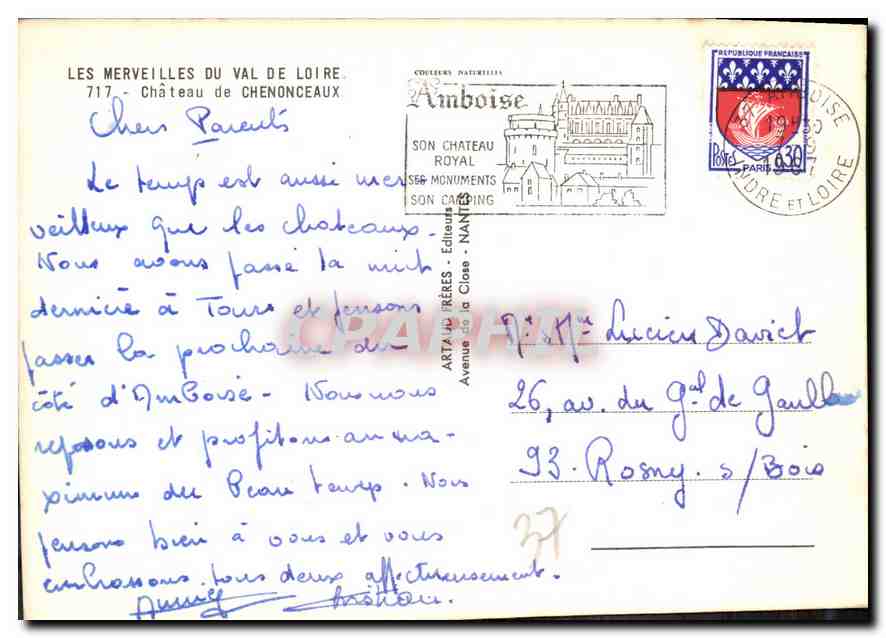 LES MERVEILLES DU VAL DE LOIRE
717 - Château de CHENONCEAUX
Chers Parents
Le temps est aussi mer-
veilleux que les chateaux.
Nous avons passé la nuit
dernière à Tours et pensons
passer la prochaine du
côté d'Amboise - Nous nous
reposons et profitons au ma-
ximum du beau temps. Nous
pensons bien à vous et vous
embrassons tous deux affectueusement.
COULEURS NATURELLES
Amboise
SON CHATEAU
ROYAL
SES MONUMENTS
SON CAMPING
REPUBLIQUE FRANÇAISE
POSTES
0,30
PARIS
INDRE ET LOIRE
ARTAUD FRÈRES - Editeurs
Avenue de la Close - NANTES
CPAPHIL
Mr & Mme Lucien Davict
26, av. du Gal de Gaulle
93. Rosny s/Bois
37